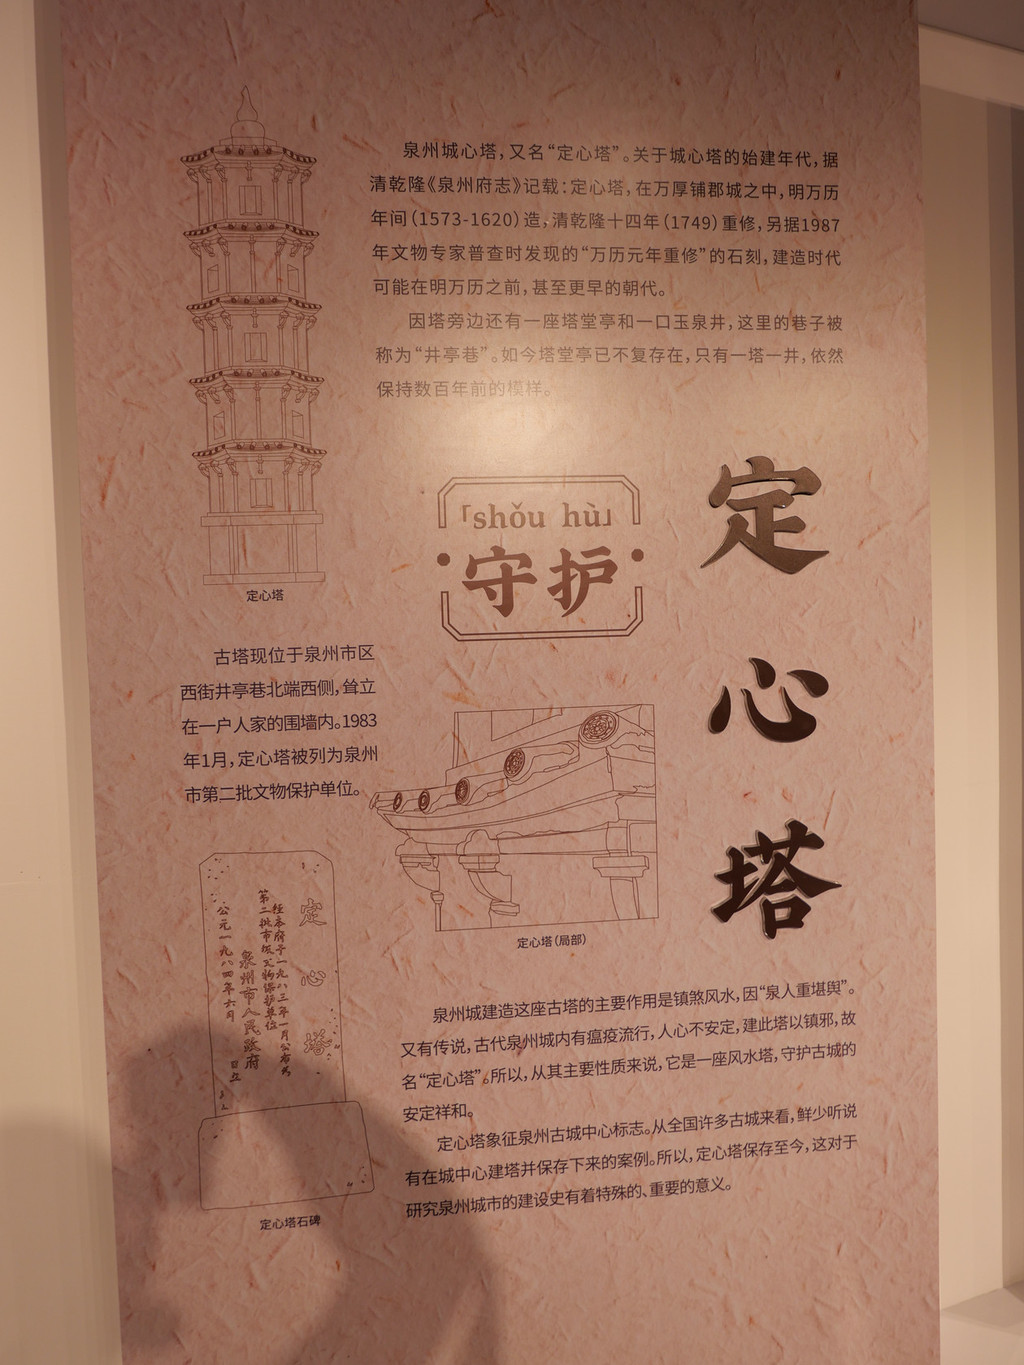 泉州城心塔，又名“定心塔”。关于城心塔的始建年代，据
清乾隆《泉州府志》记载：定心塔，在万厚铺郡城之中，明万历
年间（1573-1620）造，清乾隆十四年（1749）重修，另据1987
年文物专家普查时发现的“万历元年重修”的石刻，建造时代
可能在明万历之前，甚至更早的朝代。
因塔旁边还有一座塔堂亭和一口玉泉井，这里的巷子被
称为“井亭巷”。如今塔堂亭已不复存在，只有一塔一井，依然
保持数百年前的模样。
「shǒu hù」
守护
定心塔
定心塔
古塔现位于泉州市区
西街井亭巷北端西侧，耸立
在一户人家的围墙内。1983
年1月，定心塔被列为泉州
市第二批文物保护单位。
定心塔（局部）
定心塔
经本府于一九八三年一月公布为
第二批市级文物保护单位
泉州市人民政府
公元一九八四年六月
日立
定心塔石碑
泉州城建造这座古塔的主要作用是镇煞风水，因“泉人重堪舆”。
又有传说，古代泉州城内有瘟疫流行，人心不安定，建此塔以镇邪，故
名“定心塔”。所以，从其主要性质来说，它是一座风水塔，守护古城的
安定祥和。
定心塔象征泉州古城中心标志。从全国许多古城来看，鲜少听说
有在城中心建塔并保存下来的案例。所以，定心塔保存至今，这对于
研究泉州城市的建设史有着特殊的、重要的意义。